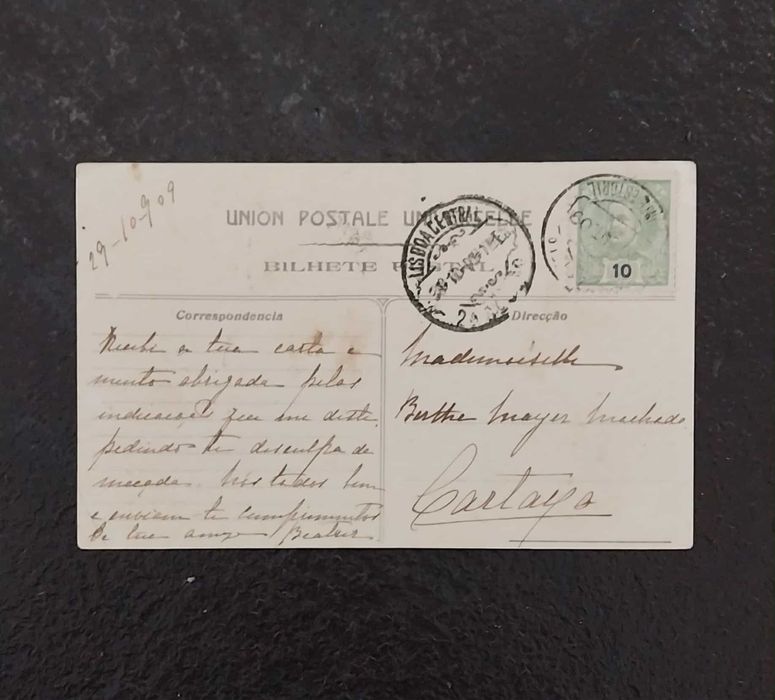 29-10-909
UNION POSTALE UNIVERSELLE
BILHETE POSTAL
LISBOA CENTRAL
10
Correspondencia
Direcção
Recebi a tua carta e
muito obrigada pelas
indicações que me deste
pedindo-te desculpa da
massada. Nós todos bem
e enviam-te cumprimentos
Da tua amiga Beatriz
Mademoiselle
Berthe Mayer Machado
Cartaxo